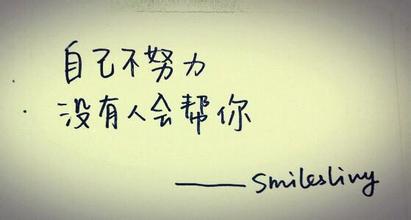 自己不努力
没有人会帮你
——smilesliny